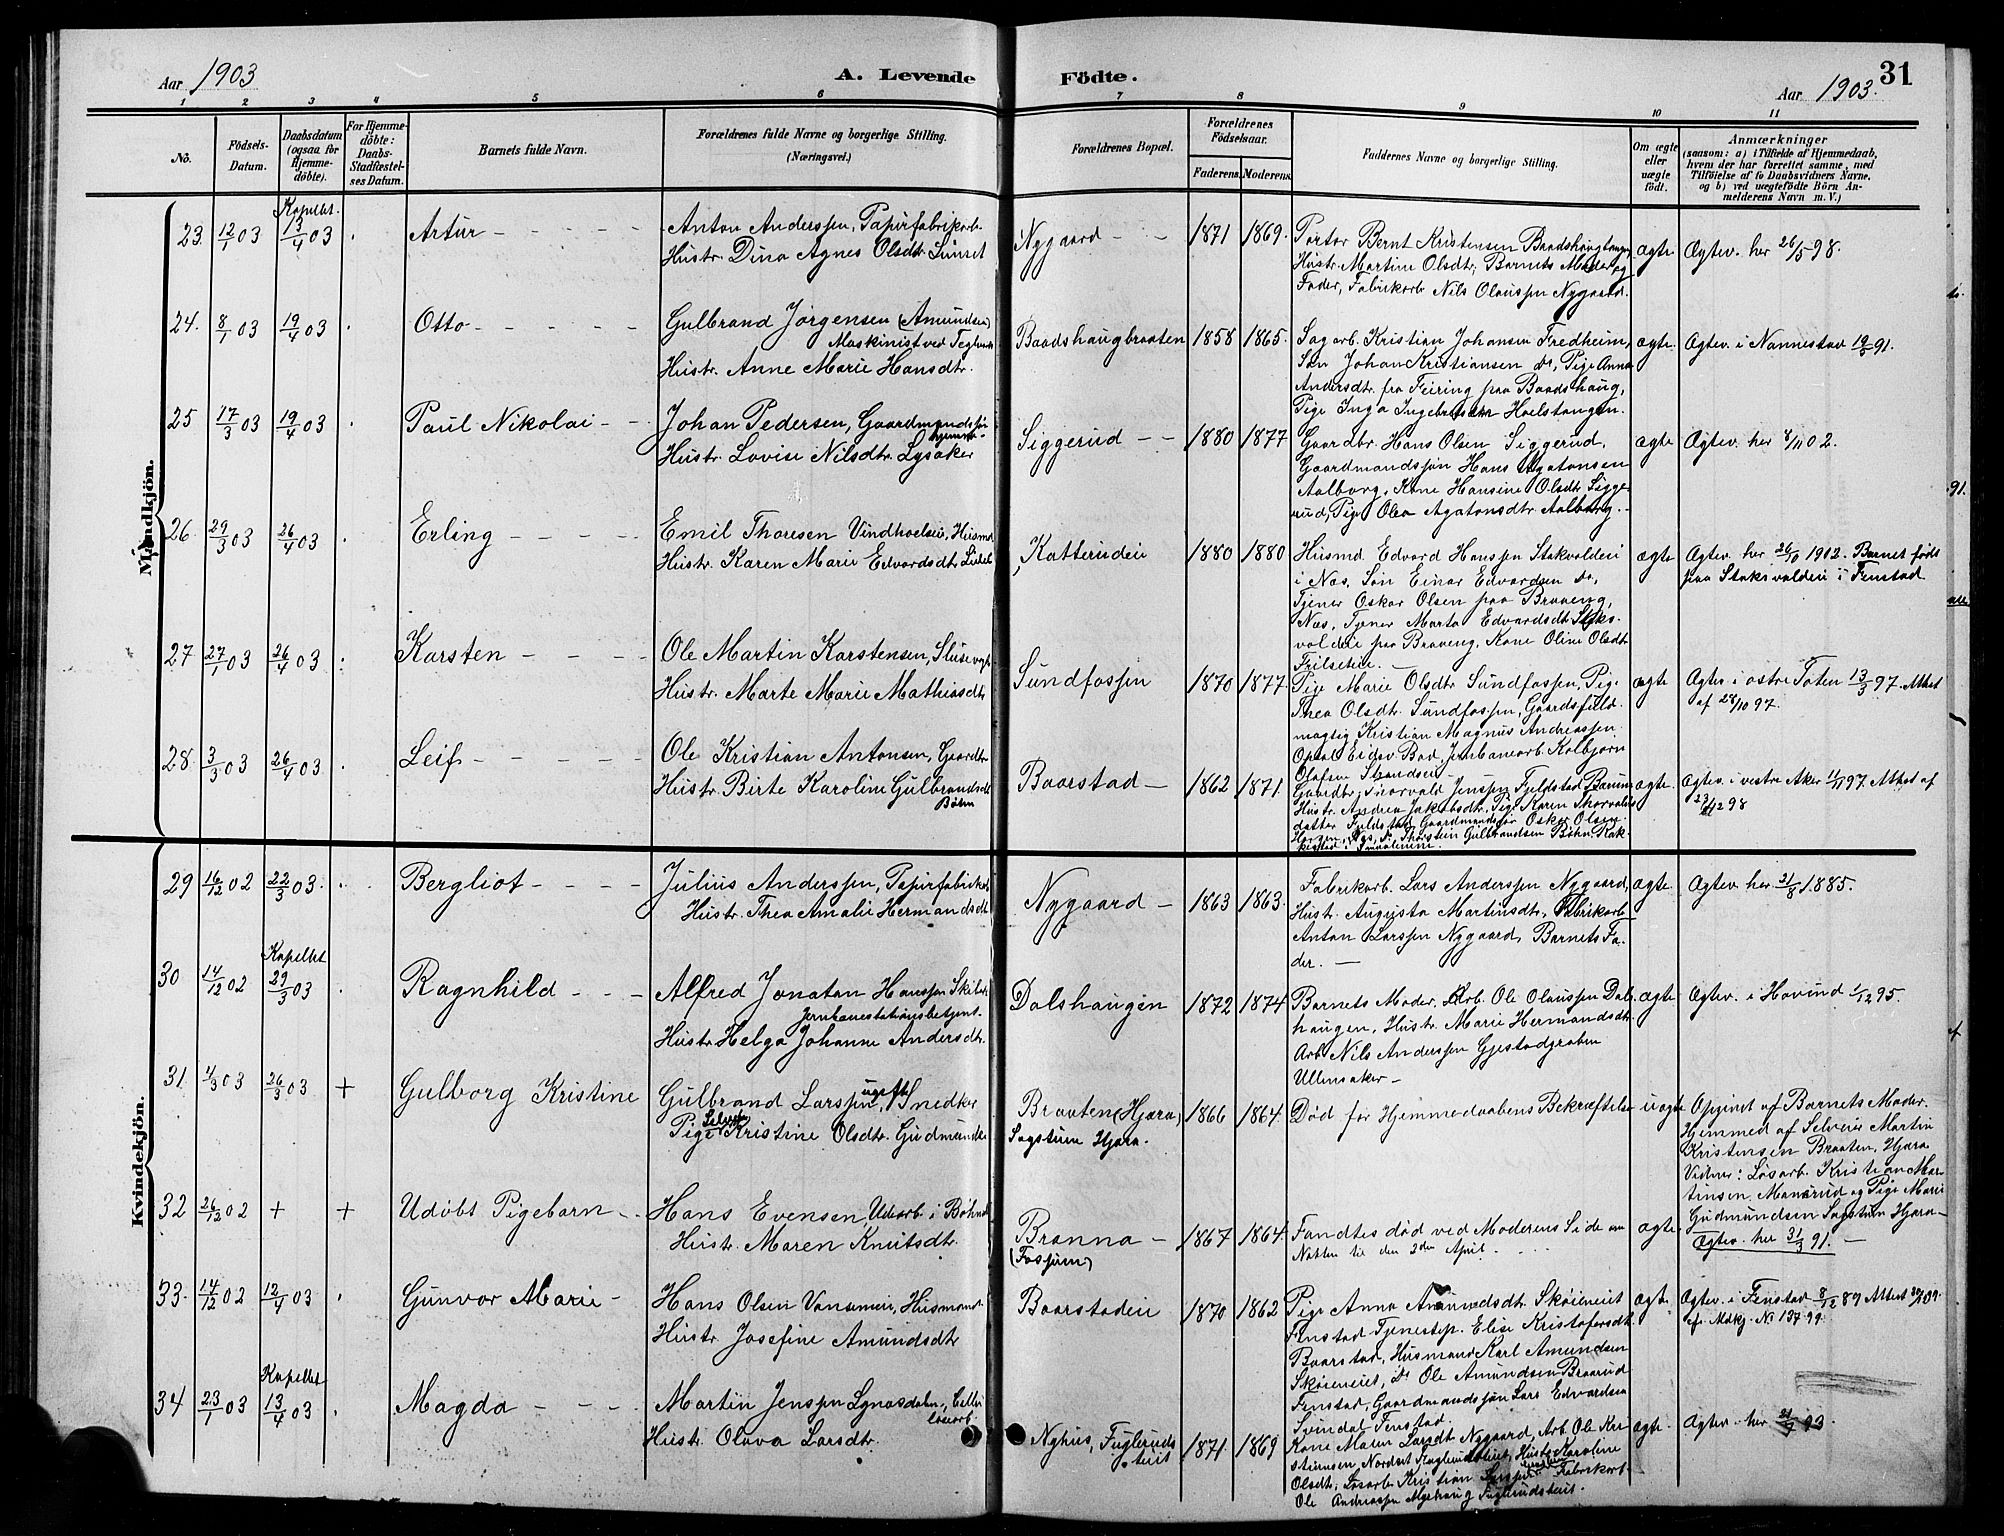 Aar 1903
A. Levende Födte.
Aar 1903.
31
1 2 3 4 5 6 7 8 9 10 11
No.
Födsels-Datum.
Daabsdatum (ogsaa for Hjemme-döbte).
For Hjemme-döbte: Daabs-Stadfæstel-ses Datum.
Barnets fulde Navn.
Forældrenes fulde Navne og borgerlige Stilling. (Næringsvei.)
Forældrenes Bopæl.
Forældrenes Födselsaar.
Faderens. Moderens.
Faddernes Navne og borgerlige Stilling.
Om ægte eller uægte födt.
Anmærkninger
(saasom: a) i Tilfælde af Hjemmedaab,
hvem der har forrettet samme, med
Tilföielse af to Daabsvidners Navne,
og b) ved uægtefödte Börn An-
melderens Navn m. V.)
Mandkjön.
23. 12/1 03 Kapellet. 13/4 03 Artur
Anton Anderssen, Papirfabrikarb.
Hustr. Dina Agnes Olsdtr.
Nygaard 1871 1869.
Bernt Kristensen
Hustr. Martine Olsdtr, Barnets Moder og
Fader, Fabrikarb Nils Olaussen Nygaard.
ægte Ægtev. her 26/5 98.
24. 8/1 03 19/4 03 Otto
Gulbrand Jørgensen (Amundsen)
Maskinist ved
Hustr. Anne Marie Hansdtr.
Baadshaugbraaten 1858 1865.
Sagarb. Kristian Johansen Fredheim,
Søn Johan Kristiansen do, Pige Anna
Andersdtr. fra Feiring paa Baadshaug,
Pige Inga
ægte. Ægtev. i Nannestad 19/5 91.
25 17/3 03 19/4 03 Paul Nikolai
Johan Pedersen, Gaardmandssøn
Hustr. Lovise Nilsdtr. Lysaker
Siggerud 1880 1877
Gaardbr. Hans Olsen Siggerud,
Gaardmandssøn Hans Agatonsen
Aalborg, Kone Hansine Olsdtr Sigge-
rud, Pige Olea Agatonsdtr Aalborg.
ægte Ægtev. her 8/11 02.
26 29/3 03 26/4 03 Erling
Emil Thoresen Husmd
Hustr. Karen Marie Edvardsdtr
Katterudeie 1880 1880
Husmd Edvard Hanssen Stoksvoldeie
i Næs, Søn Einar Edvardsen do,
Tjener Oskar Olsen paa Braaeng,
Næs, Tjener Marta Edvardsdtr Stoks-
voldeie paa Braaeng, Kone Oline Olsdtr
ægte Ægtev. her 26/10 1902. Barnet født
paa Stoksvoldeie i Fenstad
27 27/1 03 26/4 03 Karsten
Ole Martin Karstensen, Slusevogt
Hustr. Marte Marie Mathiasdtr
Sundfossen 1870 1877.
Pige Marie Olsdtr Sundfossen, Pige
Thea Olsdtr. Sundfossen, Gaardsfuld-
mægtig Kristian Magnus Andreassen
Jernbanearb. Kolbjørn
Olafsen
ægte Ægtev i østre Toten 13/3 97. Attest
af 28/10 97.
28. 3/3 03 26/4 03 Leif
Ole Kristian Antonsen, Gaardbr
Hustr. Birte Karoline Gulbrandsdtr
Bøhn
Baarstad 1862 1871
Gaardbr. Thorvald Jenssen Fjeldstad
Hustr. Andrea Jakobsdtr, Pige Karen Thorvalds
datter Fjeldstad, Gaardmandssøn Oskar Olsen
Thorstein Gulbrandsen Bøhn
ægte. Ægtev. i vestre Aker 1/11 97. Attest af
23/12 98
Kvindekjön.
29 16/12 02 22/3 03. Bergliot
Julius Anderssen, Papirfabrikarb
Hustr. Thea Amalie Hermandsdtr
Nygaard 1863 1863.
Fabrikarb. Lars Anderssen Nygaard,
Hustr. Augusta Martinsdtr, Fabrikarb
Anton Larssen Nygaard, Barnets Fa-
der.
ægte Ægtev. her 21/8 1885.
30 14/12 02 Kapellet 29/3 03 Ragnhild
Alfred Jonatan Hanssen
Jernbanestationsbetjent
Hustr. Helga Johanne Andersdtr.
Dalshaugen 1872 1874
Barnets Moder, Arb. Ole Olaussen Dals
haugen, Hustr. Marie Hermandsdtr.
Arb Nils Anderssen Gjestadgraben
Ullensaker
ægte Ægtev. i Hovind 1/12 95.
31. 1/3 03 26/3 03 + Gulborg Kristine
Gulbrand Larssen, ugift Snedker
Pige Kristine Olsdtr. Gudmunds
Braaten (Hjera)
Sagstuen Hjera.
1866 1864
Død før Hjemmedaabens Bekræftelse
uægte Opgivet af Barnets Moder,
Hjemmed. af Selveier Martin
Kristensen Braaten, Hjera
Vidner: Løsarb. Kristian Mar-
tinsen Monsrud og Pige Marie
Gudmundsen Sagstuen Hjera
32 26/12 02 + + Udøbt Pigebarn
Hans Evensen, i Bøhn
Hustr. Maren Knutsdtr.
Branna
(Fossum)
1867 1864
Fandtes død ved Moderens Side om
Natten til den 2den April.
ægte. Ægtev. her 31/3 91.
33. 14/12 02 12/4 03 Gunvor Marie
Hans Olsen Husmand
Hustr Josefine Amundsdtr
Baarstadeie 1870 1862
Pige Anna Amundsdtr. Skøieneiet
Fenstad Tjenestep. Elise Kristofersdtr.
Baarstad, Husmand Karl Amundsen
Skøieneiet, do Ole Amundsen Braarud
Fenstad, Gaardmandssøn Lars Edvardsen
Svindal Fenstad.
ægte. Ægtev. i Fenstad 8/12 89
No 137
34 23/1 03 Kapellet 13/4 03 Magda
Martin Jenssen
Hustr. Olava Larsdtr.
Nyhus, Fuglerudseiet 1871 1869
Kone Maren Larsdtr Nygaard, Arb Ole Kri
stiansen, Nordset Fuglerudseiet, Hustr Karoline
Olsdtr, Løsarb. Kristian Fabrikarb.
Ole Andreassen Fuglerudseiet.
ægte. Ægtev. her 93.